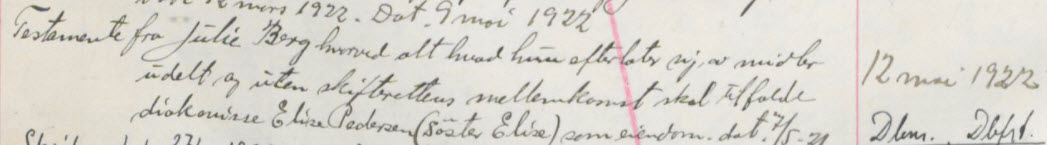 12 mars 1922. Dat. 9 mai 1922
Testamente fra Julie Berg hvorved alt hvad hun efterlater sig av midler
udelt og uten skifterettens mellemkomst skal tilfalde
diakonisse Elise Pedersen (söster Elise) som eiendom. dat. 7/5-21
12 mai 1922
Dbnr. , Dbfrt.